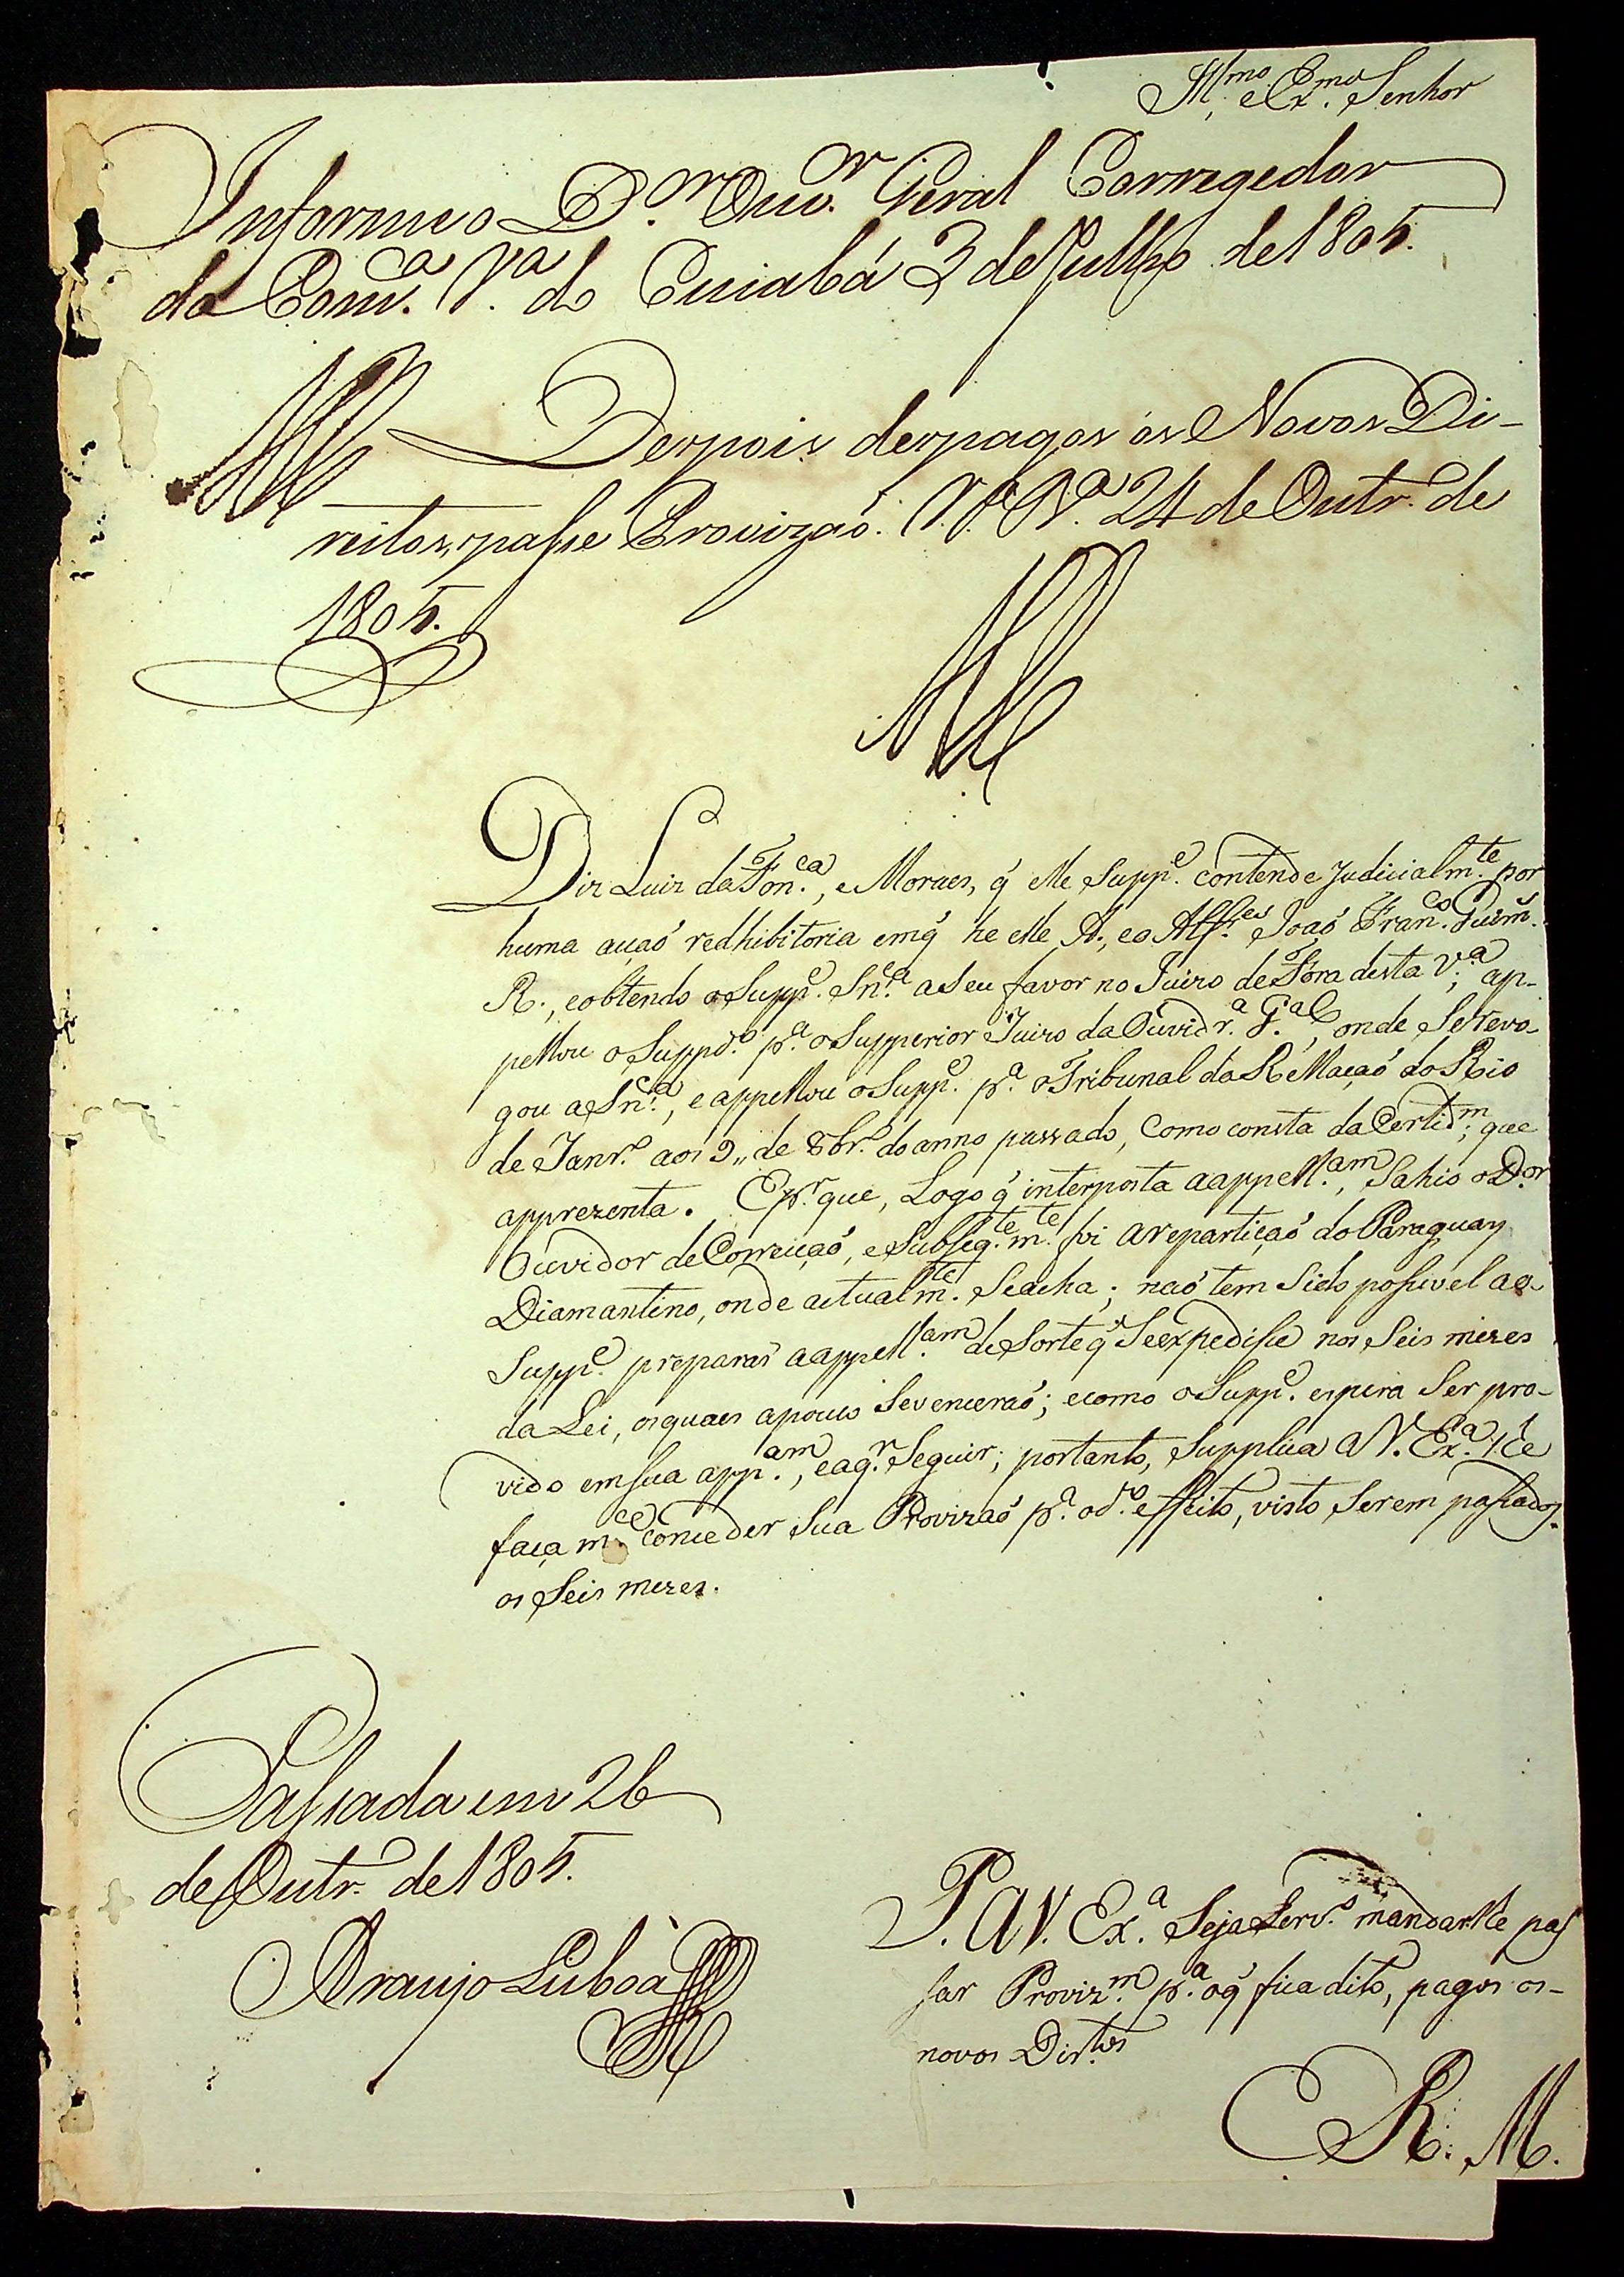 Ill.mo e Ex.mo Senhor
Informe o D.or Ouv.or Geral Corregedor
da Com.ca V.a do Cuiabá 3 de Julho de 1805.
Despois de pagos os Novos Di-
reitos, passe Provizaõ. V.a B.a 24 de Outr.o de
1805.
Diz Luiz da Fon.ca, e Moraes, q̃ elle Supp.e contende judicialm.te por
huma acaõ redhibitoria em q̃ he elle A., e o Alf.es Joaõ Fran.co Guim.s
R., e obtendo o Supp.e Sn.ca a Seu favor no Juizo de Fora desta V.a, ap-
pellou o Suppd.o p.a o Supperior Juizo da Ouvidr.a G.al, onde Se revo-
gou a Sn.ca, e appellou o Supp.e p.a o Tribunal da Rellaçaõ do Rio
de Janr.o aos 9,, de 8br.o do anno passado, Como consta da Certid.m, que
apprezenta. E p.r que, Logo q̃ interposta a appell.am, Sahio o D.or
Ouvidor de Correiçaõ, e Subseq.te m.te foi a repartiçaõ do Paraguay
Diamantino, onde actualm.te Se acha; naõ tem Sido possivel ao
Supp.e preparar a appell.am de Sorte q̃ Se expedisse nos Seis mezes
da Lei, os quaes a pouco Se venceraõ; e como o Supp.e espera Ser pro-
vido em sua app.am, e a q.r Seguir; portanto, Supplica a V. Ex.a lhe
faça m.ce conceder Sua Provizaõ p.a o d.o effeito, visto Serem passados
os Seis mezes.
Passada em 26
de Outr.o de 1805.
Araujo Lisboa
P. a V. Ex.a Seja Serv.o mandar lhe pas
sar Proviz.m p.a o q̃ fica dito, pagos os-
novos Dir.tos
E. R. M.